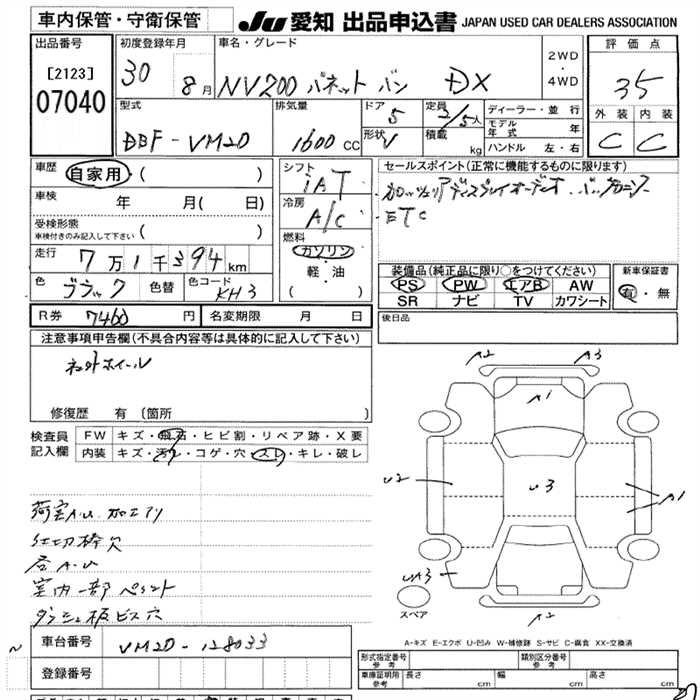 車内保管・守衛保管
JU 愛知 出品申込書 JAPAN USED CAR DEALERS ASSOCIATION
出品番号
[2123]
07040
初度登録年月
30 8月
車名・グレード
NV200 バネットバン DX
2WD・4WD
評価点
35
外装 内装
C C
型式
DBF-VM20
排気量
1600 CC
ドア
5
形状
V
定員
2/5人
積載
kg
ディーラー・並行
モデル年式 年
ハンドル 左・右
車歴
自家用 ( )
車検
年 月( 日)
受検形態
車検付きのみ記入して下さい ( )
走行
7万1千394km
色
ブラック
色替
色コード
KH3
シフト
IAT
冷房
A/C
燃料
ガソリン・軽・油
( )
セールスポイント(正常に機能するものに限ります)
ETC
装備品(純正品に限り○をつけてください)
PS PW エアB AW
SR ナビ TV カワシート
新車保証書
有・無
R券 7460円 名変期限 月 日
後日品
注意事項申告欄(不具合内容等は具体的に記入して下さい)
ホイール
修復歴 有(箇所 )
検査員記入欄
FW キズ・飛石・ヒビ割・リペア跡・X要
内装 キズ・汚れ・コゲ・穴・スレ・キレ・破レ
荷室A.U 加工アリ
A2 A3
A1
U2 U3 A1
UA3
A2
スペア
A-キズ E-エクボ U-凹み W-補修跡 S-サビ C-腐食 XX-交換済
室内一部ペイント
ダッシュ板ビス穴
車台番号 VM20-128033
登録番号
形式指定番号
参考
類別区分番号
参考
車庫証明用
参考
長さ cm 幅 cm 高さ cm